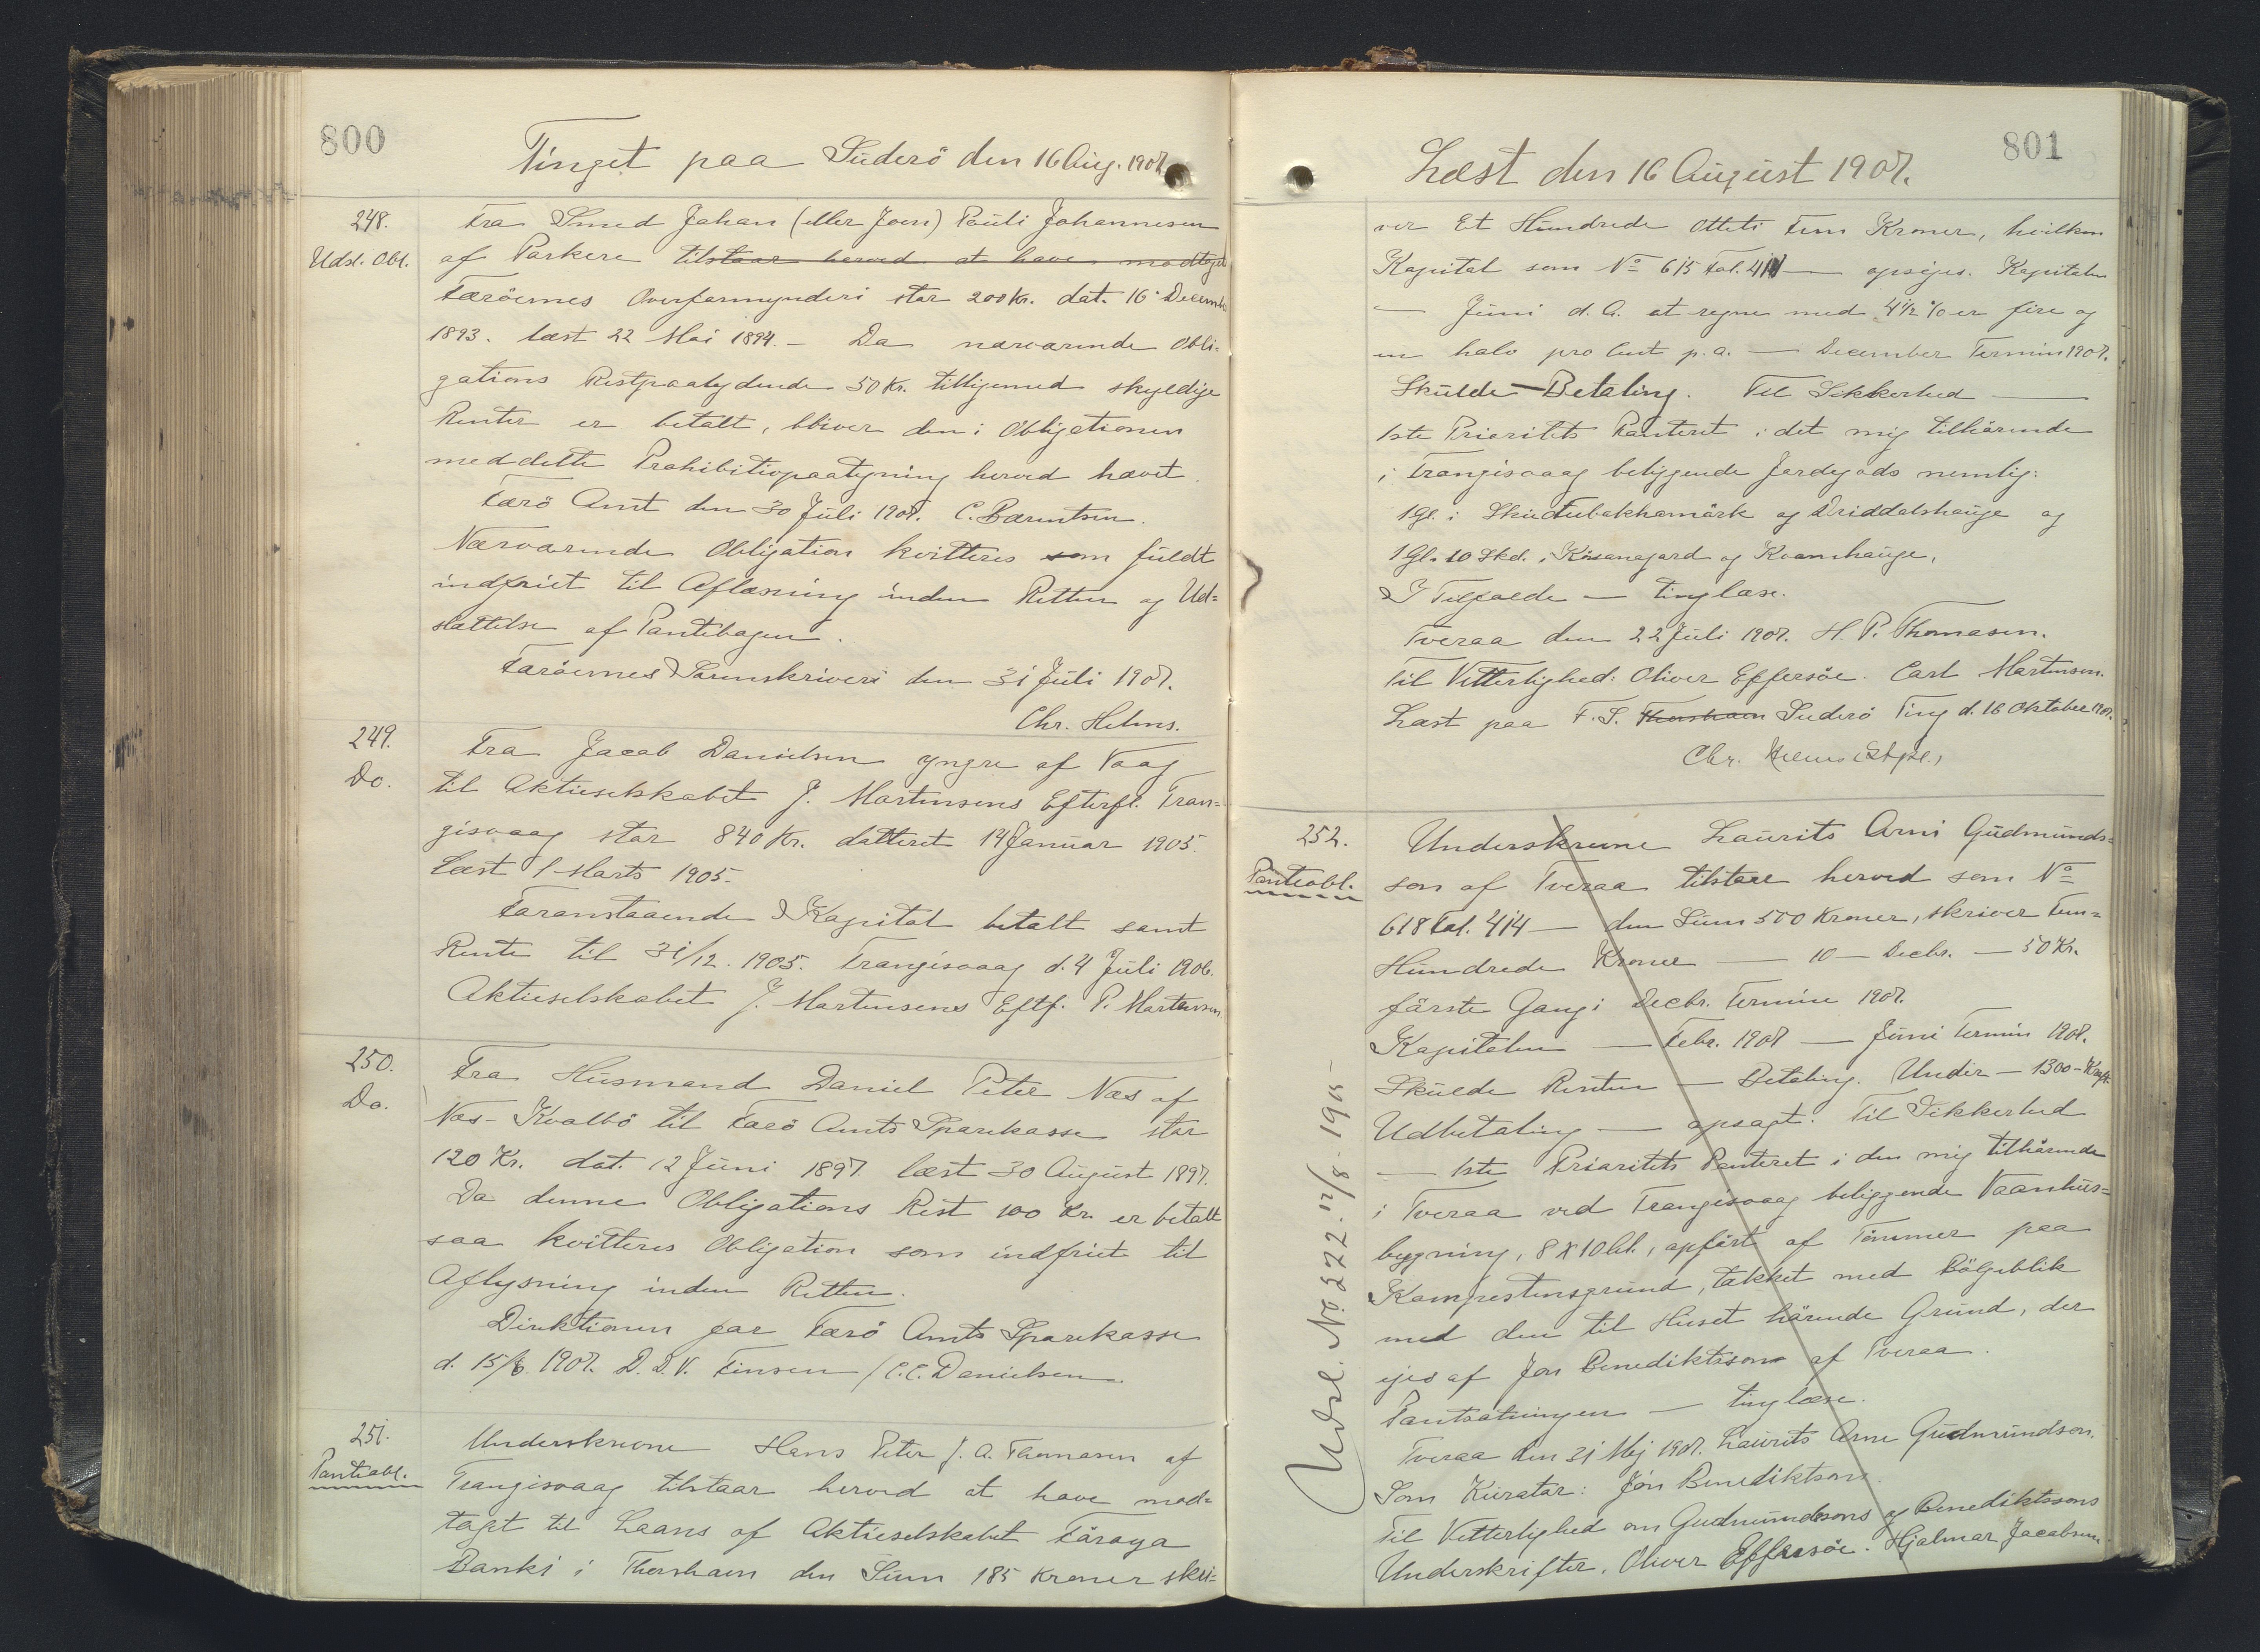 800
Tinget paa Suderö den 16 Aug. 1907.
248.
Udsl. Obl.
Fra Smed Johan (eller Joen) Pauli Johannesen
af Porkere tilstaar herved at have modtaget
Færöernes Overformynderi stor 200 Kr. dat. 16 December
1893. læst 22 Mai 1894. - Da nærværende Obli-
gations Restpaalydende 50 Kr. tilligemed skyldige
Renter er betalt, bliver den i Obligationen
meddelte Prohibitivpaategning herved hævet.
Færö Amt den 30 Juli 1907. C. Bærentsen.
Nærværende Obligation kvitteres som fuldt
indfriet til Aflæsning inden Retten og Ud-
slettelse af Pantebogen.
Færöernes Sorenskriveri den 31 Juli 1907.
Chr. Helms.
249.
Do.
Fra Jacob Danielsen yngre af Vaag
til Aktieselskabet J. Mortensens Efterfl. Tran-
gisvaag stor 840 Kr. datteret 14 Januar 1905.
Læst 1 Marts 1905.
Foranstaaende Kapital betalt samt
Rente til 31/12. 1905. Trangisvaag d. 4 Juli 1906.
Aktieselskabet J. Mortensens Eftf. P. Mortensen
250.
Do.
Fra Husmand Daniel Peter Næs af
Næs - Kvalbö til Færö Amts Sparekasse stor
120 Kr. dat. 12 Juni 1897 læst 30 August 1897.
Da denne Obligations Rest 100 Kr. er betalt
saa kvitteres Obligation som indfriet til
Aflysning inden Retten.
Direktionen for Færö Amts Sparekasse
d. 15/6 1907. D. D. V. Finsen / C.C. Danielsen.
251.
Panteobl.
Underskrevne Hans Peter J. A. Thomasen af
Trangisvaag tilstaar herved at have mod-
taget til Laans af Aktieselskabet Föroya
Banki i Thorshavn den Sum 185 Kroner skri-
801
Læst den 16 August 1907.
ver Et Hundrede Otteti Fem Kroner, hvilken
Kapital som No 615 Fol. 411 — opsiges. Kapitalen
— Juni d. A. at regne med 4 1/2 % er fire og
en halv pro Cent p. a. — December Termin 1907.
Skulde — Betaling. Til Sikkerhed —
1ste Prioritets Panteret i det mig tilhörende
i Trangisvaag beliggende Jordegods nemlig:
1 Gl. i Skudtubakkamörk og Driddalshauge og
1 Gl. 10 Skd. i Kösanagard og Kvamhauge.
I Tilfælde — tinglæse.
Tveraa den 22 Juli 1907. H. P. Thomasen.
Til Vitterlighed: Oliver Effersöe. Carl Mortensen.
Læst paa F. S. Thorshavn Suderö Ting d. 16 Oktober 1907.
Chr. Helms
252.
Panteobl.
Underskrevne Laurits Arni Gudmunds-
son af Tveraa tilstaar herved som No
618 Fol. 414 — den Sum 500 Kroner, skriver Fem-
Hundrede Kroner — 10 — Decbr. — 50 Kr.
förste Gang i Decbr. Termin 1907.
Kapitalen — Febr. 1907 — Juni Termin 1907.
Skulde Renten — Betaling. Under — 1300 —
Udbetaling — opsagt. Til Sikkerhed
— 1ste Prioritets Panteret i den mig tilhörende
i Tveraa ved Trangisvaag beliggende Vaanhus-
bygning, 8 x 10 Al., opfört af Tömmer paa
Kampestensgrund, takket med Bölgeblik
med den til Huset hörende Grund, der
ejes af Jon Benediktsson af Tveraa.
Pantsætningen — tinglæse.
Tveraa den 31 Maj 1907. Laurits Arne Gudmundson.
Som Kurator: Jón Benediktsons.
Til Vitterlighed om Gudmundsons og Benediktssons
Underskrifter. Oliver Effersöe. Hjalmar Jacobsen.
Udsl. No 322. 12/8 - 190